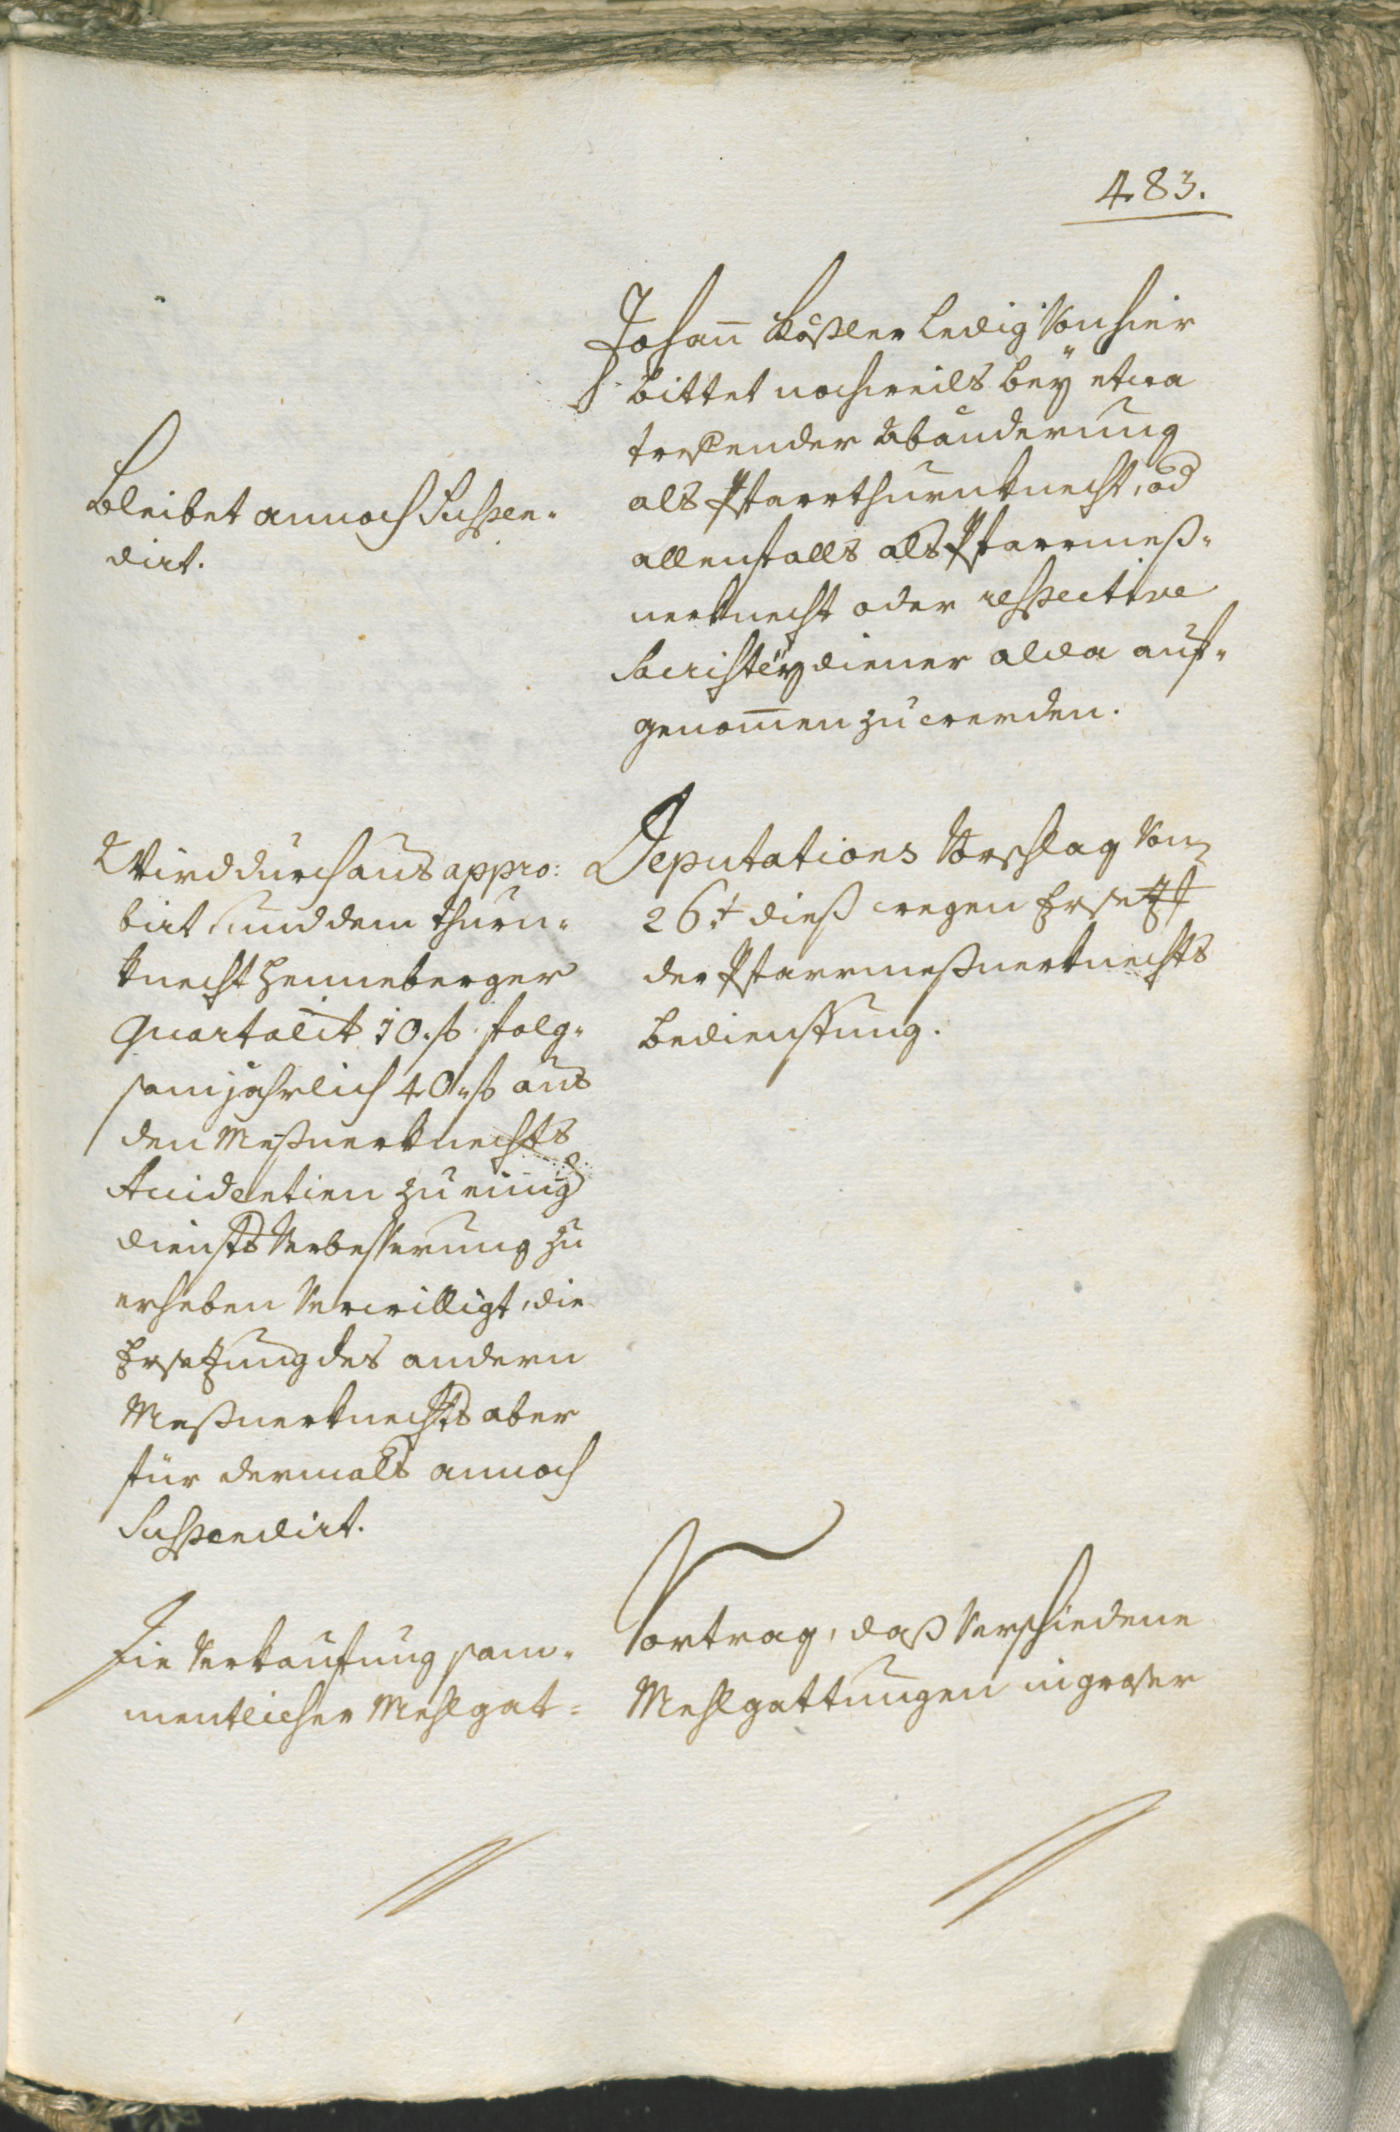 483.
Johann Kößler ledig von hier
bittet nochmals bey etwa
treffender Abänderung
als Pfarrthurnknecht, od
allenfalls als Pfarrmeß-
nerknecht oder respective
Sacristeÿdiener alda auf-
genom̄en zu werden.
Bleibet annoch suspen-
dirt.
Deputations Vorschlag vom
26.t dieß wegen Ersetz
der Pfarrmeßnerknechts
bedienstung.
Wird durchaus appro:
birt, und dem Thurn-
knecht Henneberger
Quartaliter 10. f. folg-
sam jährlich 40. f. aus
den Meßnerknechts
Accidentien zu einig
Diensts Verbesserung zu
erheben verwilligt, die
Ersetzung des andern
Meßnerknechts aber
für dermals annoch
suspendirt.
Vortrag, daß verschiedene
Mehlgattungen in groser
Die Verkaufung sam-
mentlicher Mehlgat-